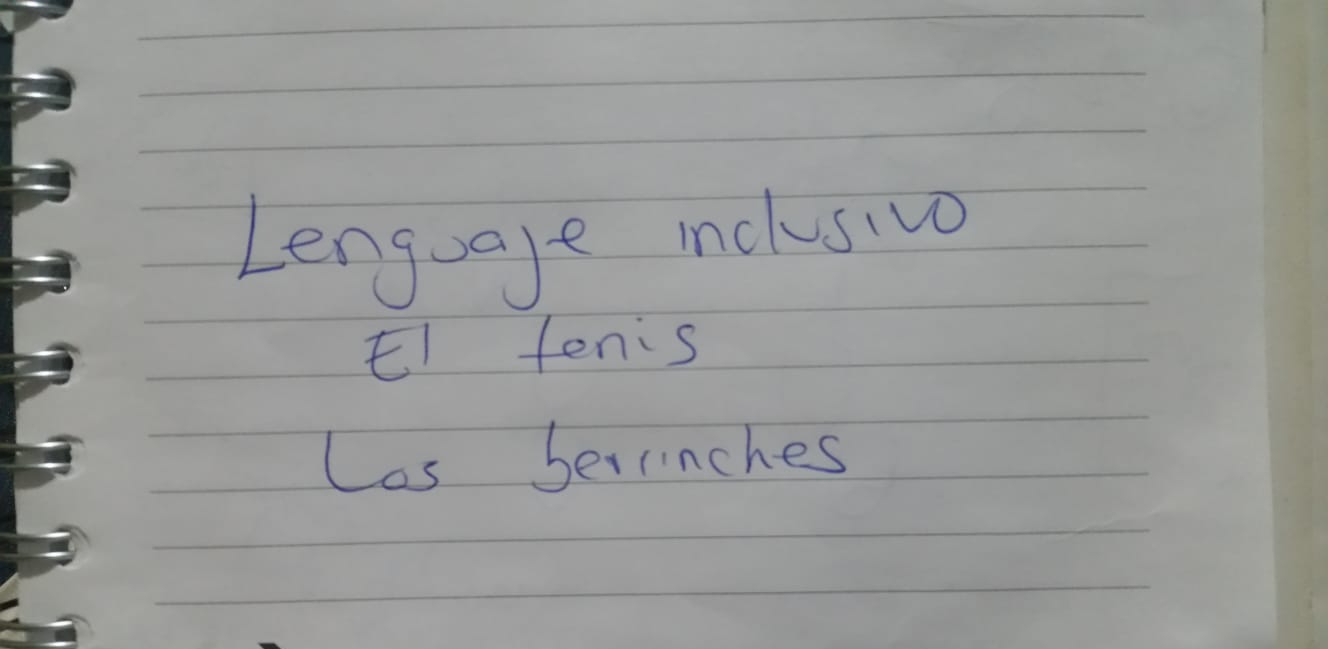 Lenguaje inclusivo
El tenis
Los berrinches